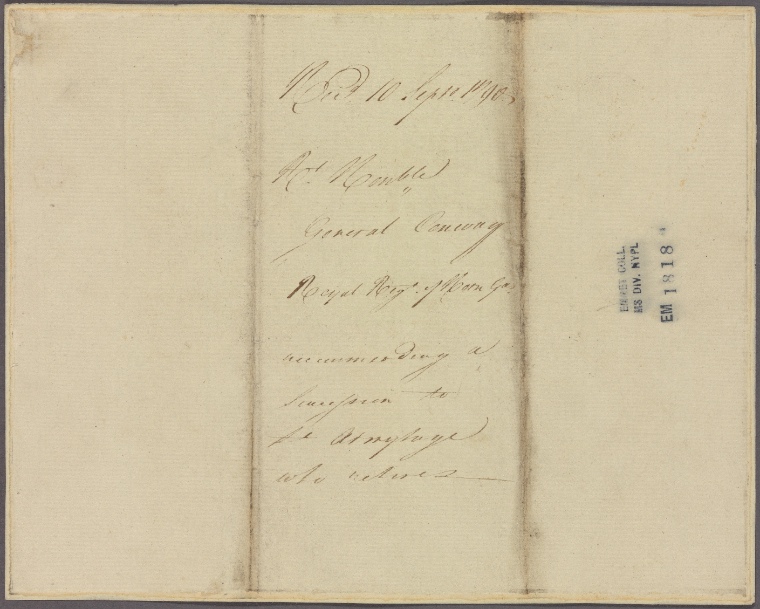 Recd 10 Septr. 1790
Rt. Honble
General Conway
Royal Regt. of Horse Gds.
recommending a
Succession to
Armytage
who retires
EMMET COLL.
MS DIV. NYPL
EM 1818